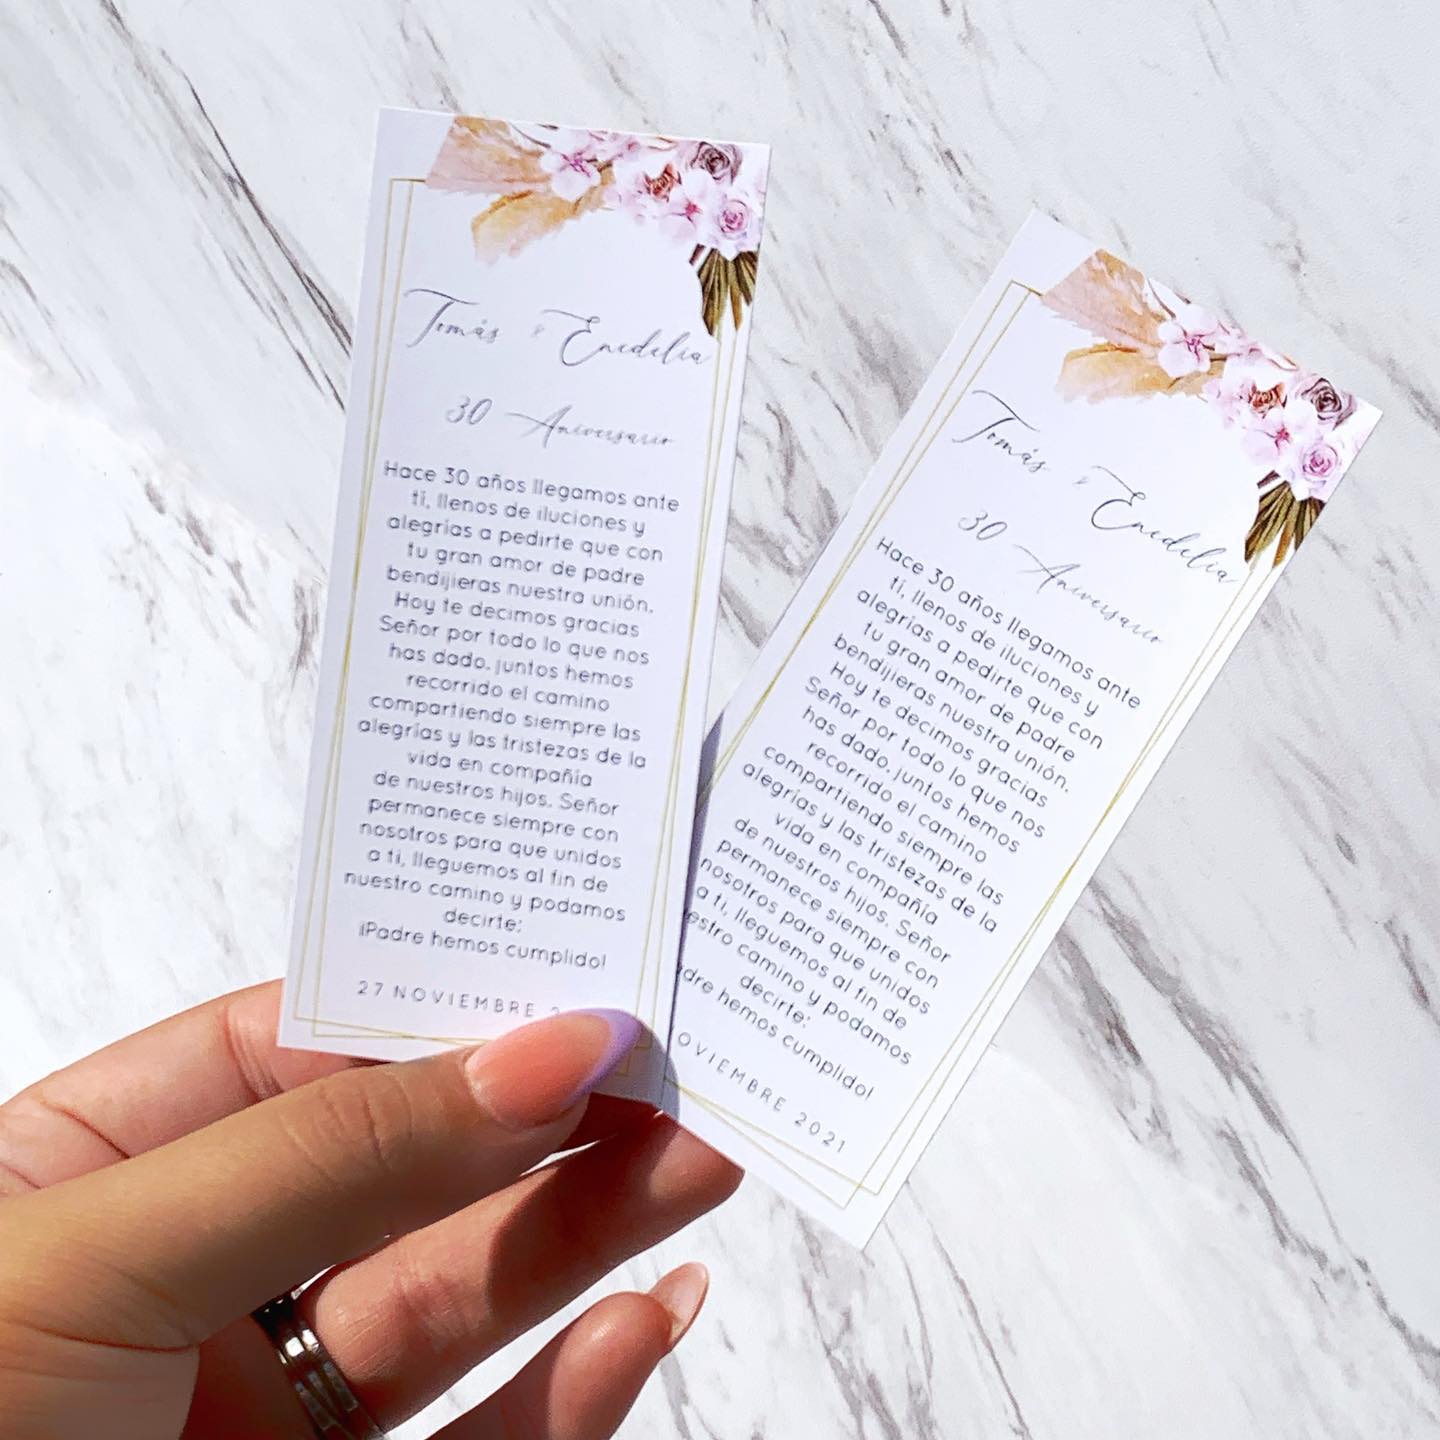 Tomás & Enedelia
30 Aniversario
Hace 30 años llegamos ante
ti, llenos de iluciones y
alegrías a pedirte que con
tu gran amor de padre
bendijieras nuestra unión.
Hoy te decimos gracias
Señor por todo lo que nos
has dado. juntos hemos
recorrido el camino
compartiendo siempre las
alegrías y las tristezas de la
vida en compañía
de nuestros hijos. Señor
permanece siempre con
nosotros para que unidos
a ti, lleguemos al fin de
nuestro camino y podamos
decirte:
¡Padre hemos cumplido!
27 NOVIEMBRE 2
Tomás & Enedelia
30 Aniversario
Hace 30 años llegamos ante
ti, llenos de iluciones y
alegrías a pedirte que con
tu gran amor de padre
bendijieras nuestra unión.
Hoy te decimos gracias
Señor por todo lo que nos
has dado. juntos hemos
recorrido el camino
compartiendo siempre las
alegrías y las tristezas de la
vida en compañía
de nuestros hijos. Señor
permanece siempre con
nosotros para que unidos
a ti, lleguemos al fin de
estro camino y podamos
decirte:
dre hemos cumplido!
OVIEMBRE 2021